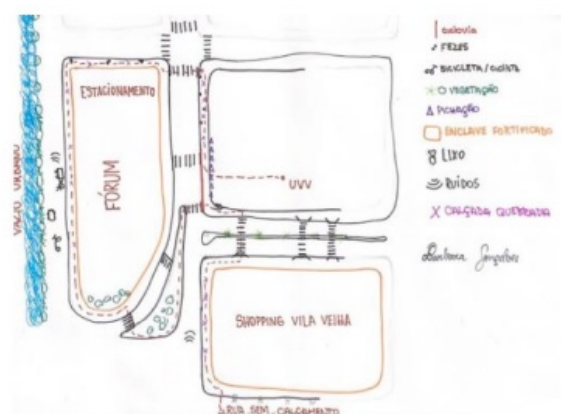 VAZIO URBANO
ESTACIONAMENTO
FÓRUM
UVV
SHOPPING VILA VELHA
RUA SEM CALÇAMENTO
ciclovia
FEZES
BICICLETA/CICLISTA
VEGETAÇÃO
PICHAÇÃO
ENCLAVE FORTIFICADO
LIXO
RUÍDOS
X CALÇADA QUEBRADA